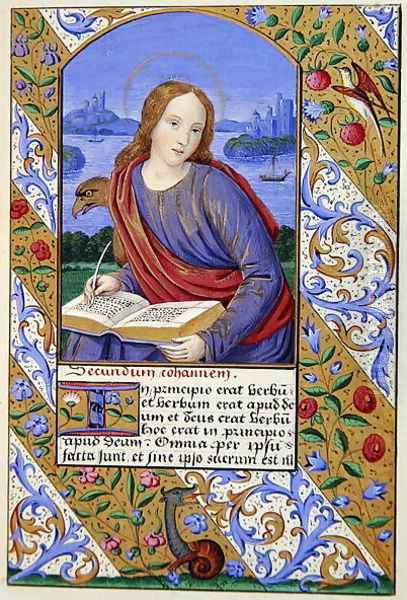 Secundum Iohannem.
In principio erat Verbū
et Verbum erat apud de
um et Deus erat Verbū
hoc erat in principio
apud Deum: Omnia per ipsū
facta sunt, et sine ipso factum est ni